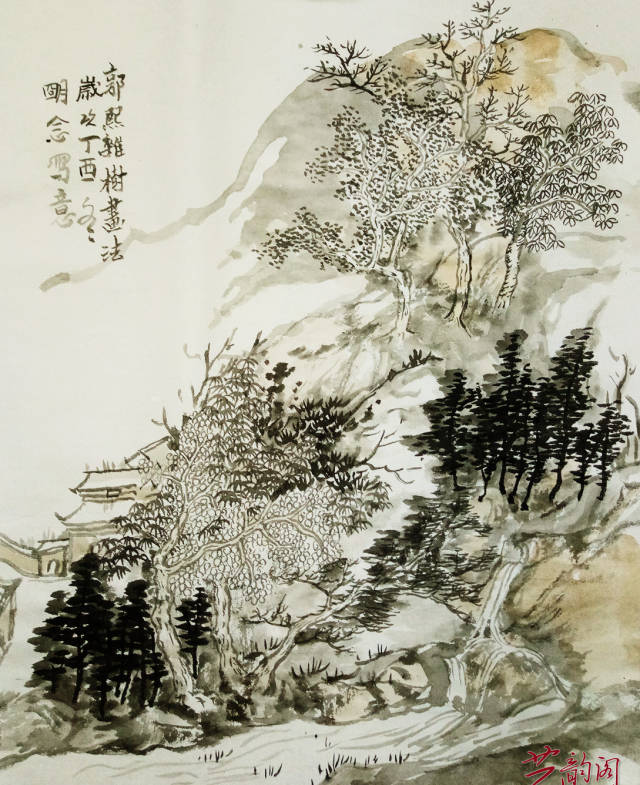 郭熙雜樹畫法
歲次丁酉冬
明念寫意
芸韵阁